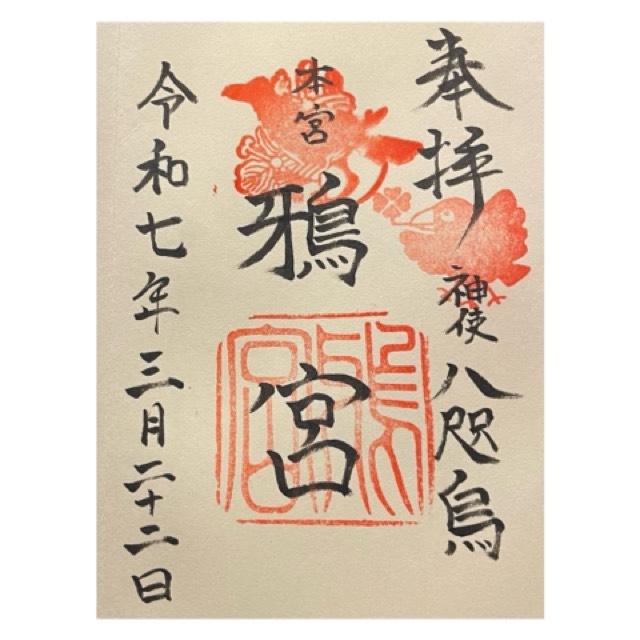 奉拝
神使 八咫烏
本宮
鴉宮
令和七年三月二十二日